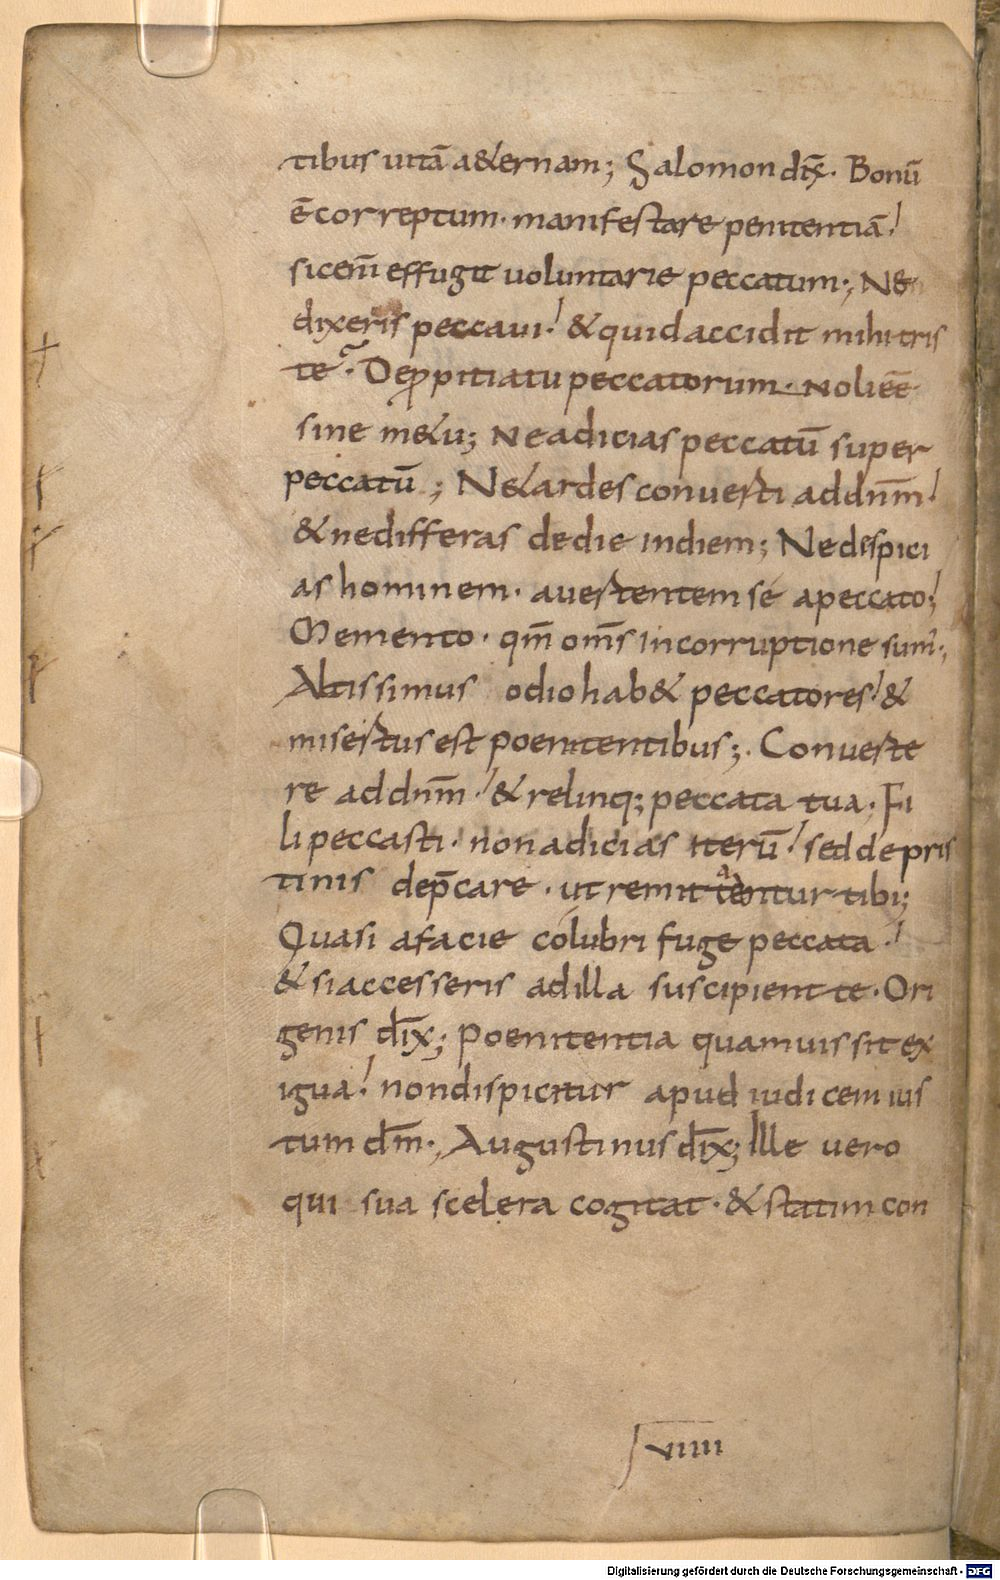 tibus uitā a&ernam; Salomon dix̄. Bonū
ē correptum· manifestare penitentiā!
sic enī effugit uoluntarie peccatum; Ne
dixeris peccaui! & quid accidit mihi tris
te· De ꝓpitiatu peccatorum· noli eē
sine m&u; Ne adicias peccatū super
peccatū; Ne tardes conuerti ad dnm̄!
& ne differas de die in diem; Ne despici
as hominem· auertentem sé a peccato;
Memento· qm̄ oms̄ in corruptione sum̄;
Altissimus odio hab& peccatores! &
misertus est poenitentibus; Conuerte
re ad dnm̄! & relinq; peccata tua· Fi
li peccasti· non adicias iterū! sed de pris
tinis dep̄care· ut remittantur tibi;
Quasi a facie cólubri fuge peccata!
& si accesseris ad illa suscipient te· Ori
genis dix̄; Poenitentia quamuis sit ex
igua! non dispicitur apud iudicem ius
tum dm̄; Augustinus dix̄; Ille uero
qui sua scelera cogitat· & statim con
uiiii
Digitalisierung gefördert durch die Deutsche Forschungsgemeinschaft - DFG